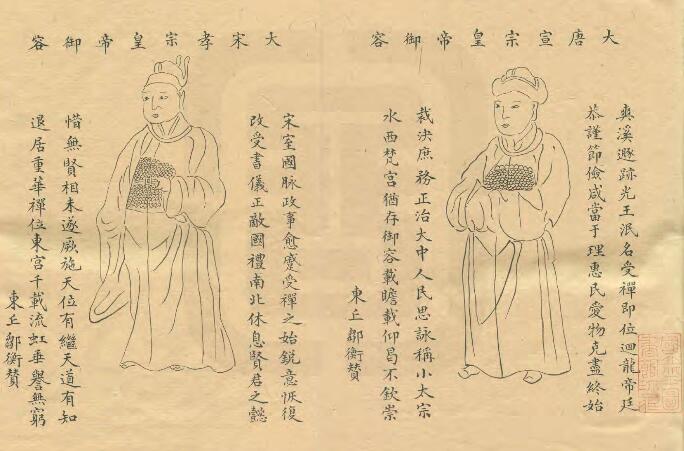 大唐宣宗皇帝御容
爽溪遯跡光王泯名受禪即位迴龍帝廷
恭謹節儉咸當于理惠民愛物克盡終始
裁決庶務正治大中人民思詠稱小太宗
水西梵宮猶存御容載瞻載仰曷不欽崇
東丘鄒衡贊
大宋孝宗皇帝御容
宋室國脉政事愈蹙受禪之始銳意恢復
改受書儀正敵國禮南北休息賢君之懿
惜無賢相未遂厥施天位有繼天道有知
退居重華禪位東宮千載流虹垂譽無窮
東丘鄒衡贊